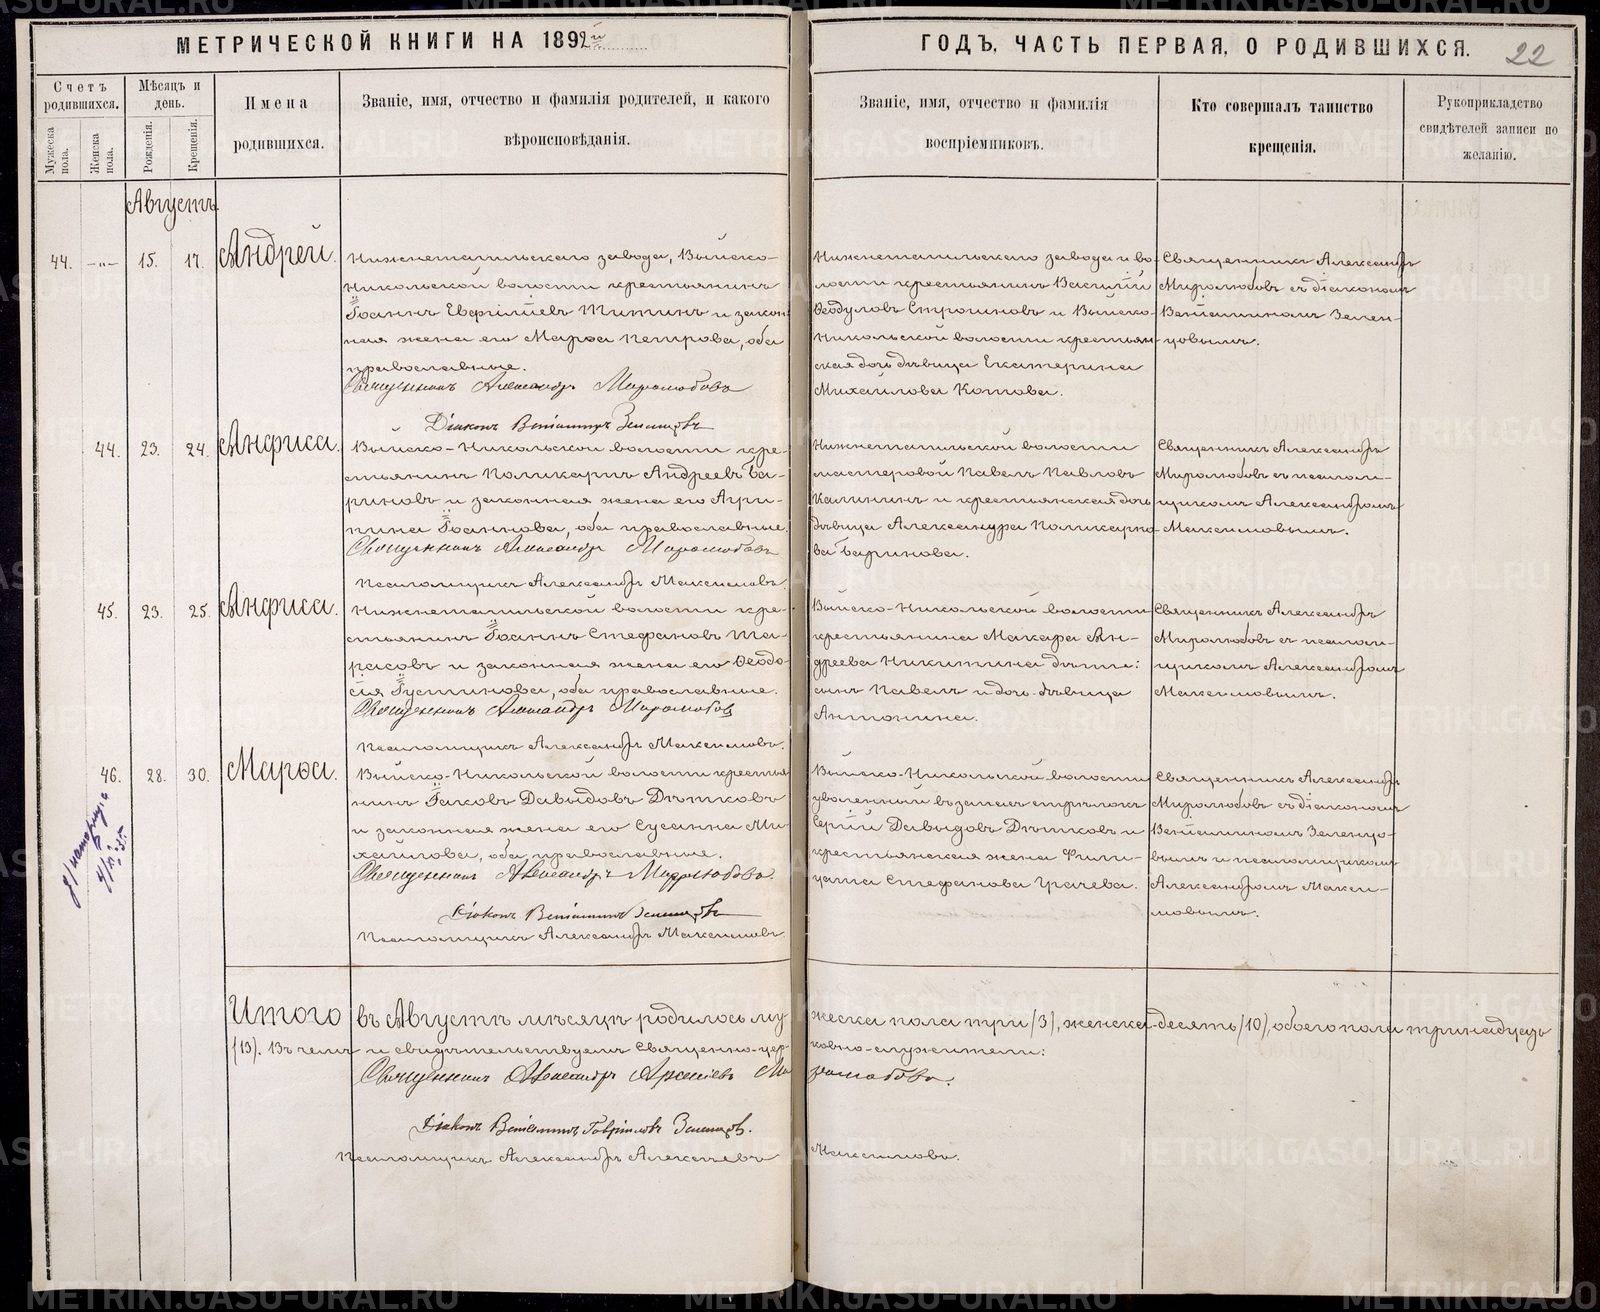 МЕТРИЧЕСКОЙ КНИГИ НА 1892й
ГОДЪ, ЧАСТЬ ПЕРВАЯ, О РОДИВШИХСЯ.
22
Счетъ родившихся.
Мужеска пола.
Женска пола.
Мѣсяцъ и день.
Рожденія.
Крещенія.
Имена родившихся.
Званіе, имя, отчество и фамилія родителей, и какого
вѣроисповѣданія.
Званіе, имя, отчество и фамилія
воспріемниковъ.
Кто совершалъ таинство
крещенія.
Рукоприкладство
свидѣтелей записи по
желанію.
Августъ.
44. —"— 15. 17. Андрей.
Нижнетагильскаго завода, Выйско-
Никольской волости крестьянинъ
Іоаннъ Евфиміевъ Титинъ и закон-
ная жена его Марѳа Петрова, оба
православные.
Священникъ Александръ Миролюбовъ
Діаконъ Веніаминъ Зеленцовъ
Нижнетагильскаго завода и во-
лости крестьянинъ Василій
Ѳеодуловъ Строшновъ и Выйско-
Никольской волости крестьян-
ская дочь дѣвица Екатерина
Михайлова Котова.
Священникъ Александръ
Миролюбовъ съ діакономъ
Веніаминомъ Зелен-
цовымъ.
44. 23. 24. Анфиса.
Выйско-Никольской волости кре-
стьянинъ Поликарпъ Андреевъ Ба-
риновъ и законная жена его Агри-
пина Іоаннова, оба православные.
Священникъ Александръ Миролюбовъ
Псаломщикъ Александръ Максимовъ.
Нижнетагильской волости
мастеровой Павелъ Павловъ
Калининъ и крестьянская дочь
дѣвица Александра Поликарпо-
ва Баринова.
Священникъ Александръ
Миролюбовъ съ псалом-
щикомъ Александромъ
Максимовымъ.
45. 23. 25. Анфиса.
Нижнетагильской волости кре-
стьянинъ Іоаннъ Стефановъ Та-
расовъ и законная жена его Ѳеодо-
сія Іустинова, оба православные.
Священникъ Александръ Миролюбовъ
Псаломщикъ Александръ Максимовъ.
Выйско-Никольской волости
крестьянина Макара Ан-
дреева Никитина дѣти:
сынъ Павелъ и дочь-дѣвица
Антонина.
Священникъ Александръ
Миролюбовъ съ псалом-
щикомъ Александромъ
Максимовымъ.
46. 28. 30. Марѳа.
Выйско-Никольской волости крестья-
нинъ Іаковъ Давыдовъ Дѣтковъ
и законная жена его Сусанна Ми-
хайлова, оба православные.
Священникъ Александръ Миролюбовъ.
Діаконъ Веніаминъ Зеленцовъ
Псаломщикъ Александръ Максимовъ
Выйско-Никольской волости
уволенный въ запасъ стрѣлокъ
Сергій Давыдовъ Дѣтковъ и
крестьянская жена Фили-
цата Стефанова Грачева.
Священникъ Александръ
Миролюбовъ съ діакономъ
Веніаминомъ Зеленцо-
вымъ и псаломщикомъ
Александромъ Макси-
мовымъ.
Итого въ Августѣ мѣсяцѣ родилось му-
жеска пола три (3), женска-десять (10), обоего пола тринадцать
(13). Въ чемъ и свидѣтельствуемъ Священно-цер-
ковно-служители:
Священникъ Александръ Арсеніевъ Ми-
ролюбовъ.
Діаконъ Веніаминъ Гавріиловъ Зеленцовъ.
Псаломщикъ Александръ Алексѣевъ
Максимовъ.
METRIKI.GASO-URAL.RU